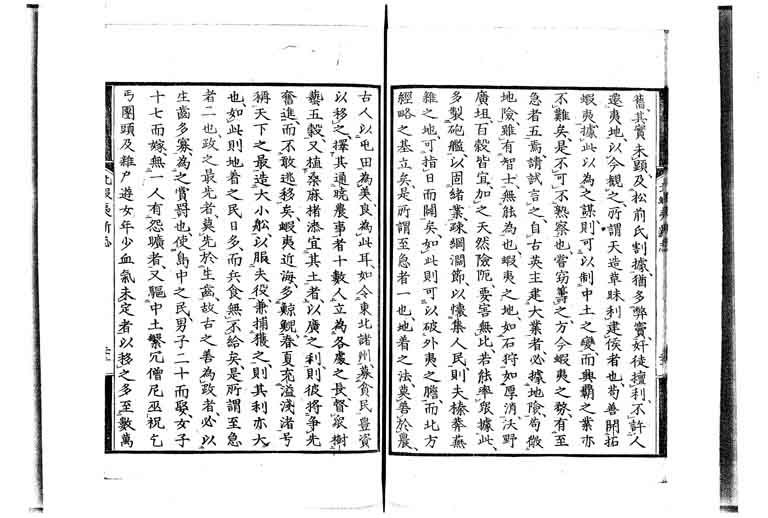 舊其實未顯及松前氏割據猶多弊竇奸徒擅利不許人
邊夷地以今觀之所謂天造草昧利建侯者也苟善開拓
蝦夷據此以為之謀則可以制中土之變而興霸之業亦
不難矣是不可不熟察也嘗窃籌之方今蝦夷之務有至
急者五焉請試言之自古英主建大業者必據地險苟微
地險雖有智士無能為也蝦夷之地如石狩如厚消沃野
廣坦百穀皆宜加之天然險阨要害無比若能率眾據此
多製砲艦以固緒業疎綱濶節以懷集人民則夫榛莽蕪
雜之地可指日而闢矣如此則可以破外夷之膽而北方
經略之基立矣是所謂至急者一也地着之法莫善於農
古人以屯田為美良為此耳如今東北諸州募貧民豊資
以移之擇其通曉農事者十數人立為各處之長督眾樹
藝五穀又植桑麻楮漆宜其土者以廣之利則彼將争先
奮進而不敢逃移矣蝦夷近海多鯨鯢春夏充溢淺渚号
稱天下之最造大小船以服夫役兼捕獲之則其利亦大
也如此則地着之民日多而兵食無不給矣是所謂至急
者二也政之最先者莫先於生齒故古之善為政者必以
生齒多寡為之賞罰也使島中之民男子二十而娶女子
十七而嫁無一人有怨曠者又驅中土繁冗僧尼巫祝乞
丐團頭及雜戶遊女年少血氣未定者以移之多至數萬